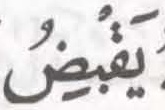 يَقْبِضُ